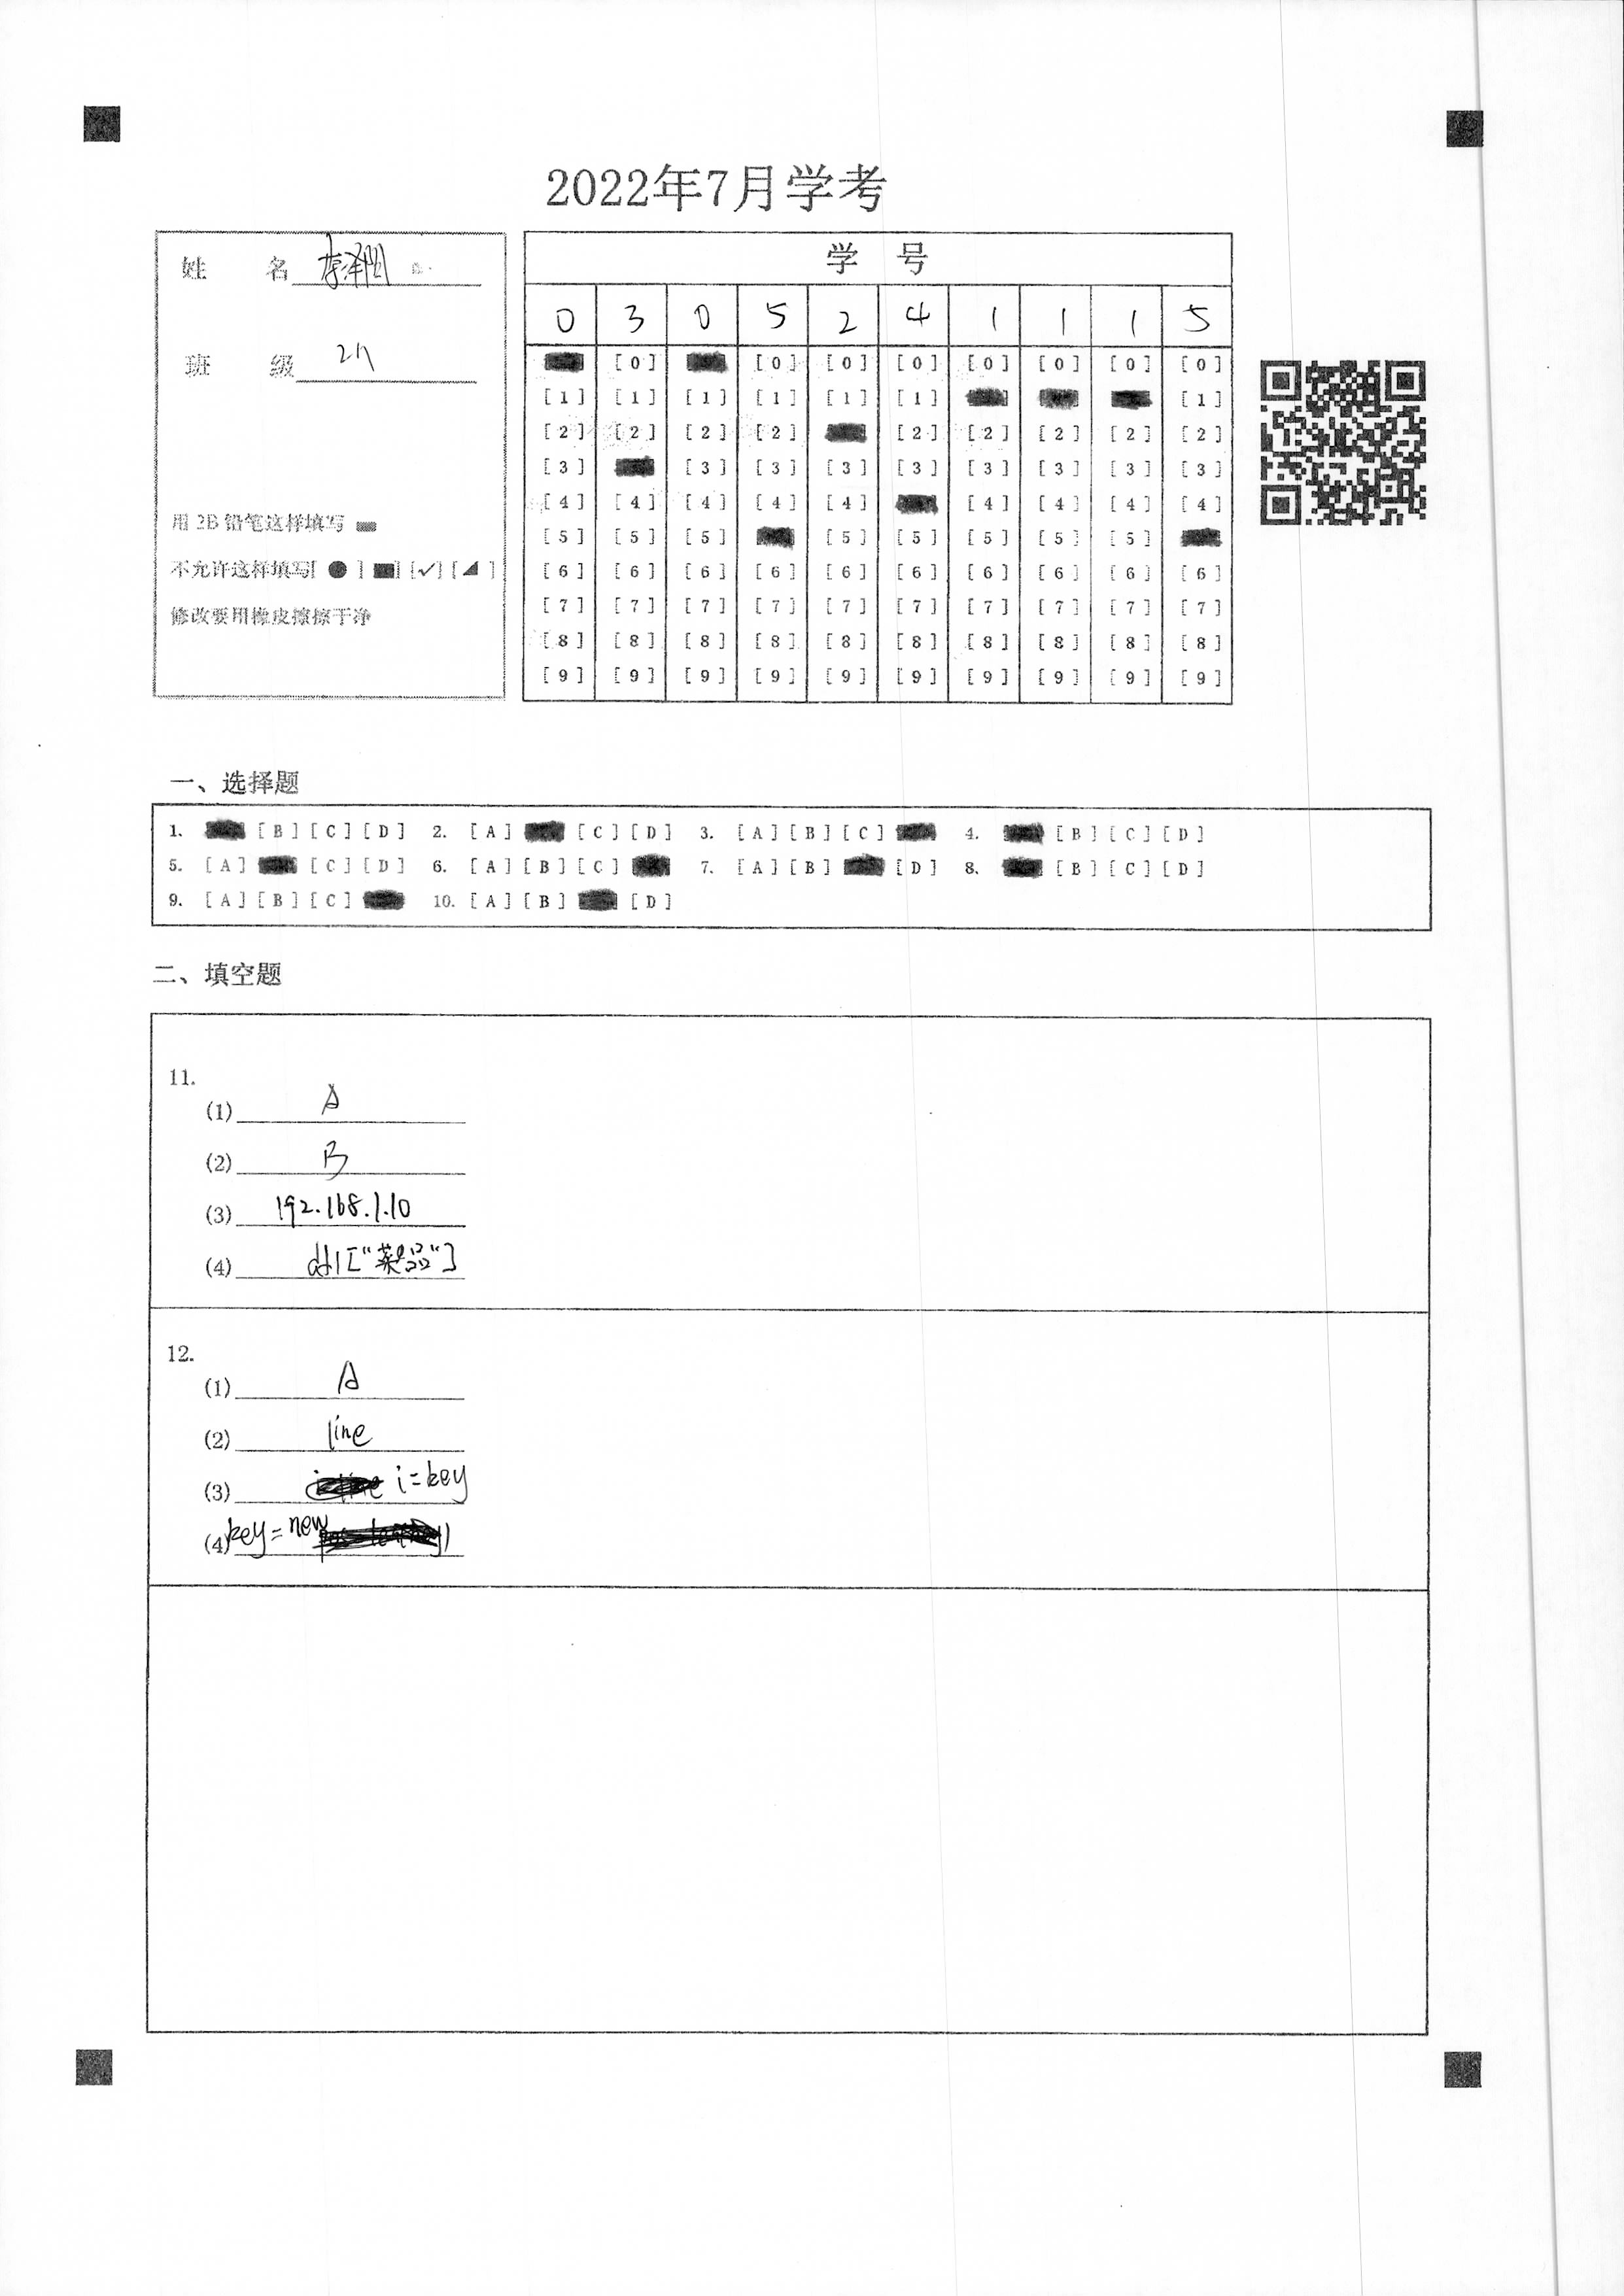 2022年7月学考
姓 名
班 级
用 2B 铅笔这样填写
不允许这样填写[ ● ] ■] [✓] [◢ ]
修改要用橡皮擦擦干净
学 号
0 3 0 5 2 4 1 1 1 5
[0] [0] [0] [0] [0] [0] [0] [0]
[1] [1] [1] [1] [1] [1] [1]
[2] [2] [2] [2] [2] [2] [2] [2] [2]
[3] [3] [3] [3] [3] [3] [3] [3] [3]
[4] [4] [4] [4] [4] [4] [4] [4] [4]
[5] [5] [5] [5] [5] [5] [5] [5]
[6] [6] [6] [6] [6] [6] [6] [6] [6] [6]
[7] [7] [7] [7] [7] [7] [7] [7] [7] [7]
[8] [8] [8] [8] [8] [8] [8] [8] [8] [8]
[9] [9] [9] [9] [9] [9] [9] [9] [9] [9]
一、选择题
1. [B] [C] [D] 2. [A] [C] [D] 3. [A] [B] [C] 4. [B] [C] [D]
5. [A] [C] [D] 6. [A] [B] [C] 7. [A] [B] [D] 8. [B] [C] [D]
9. [A] [B] [C] 10. [A] [B] [D]
二、填空题
11.
(1) A
(2) B
(3) 192.168.1.10
(4) df1["菜品"]
12.
(1) A
(2) line
(3) i=key
(4) key=new